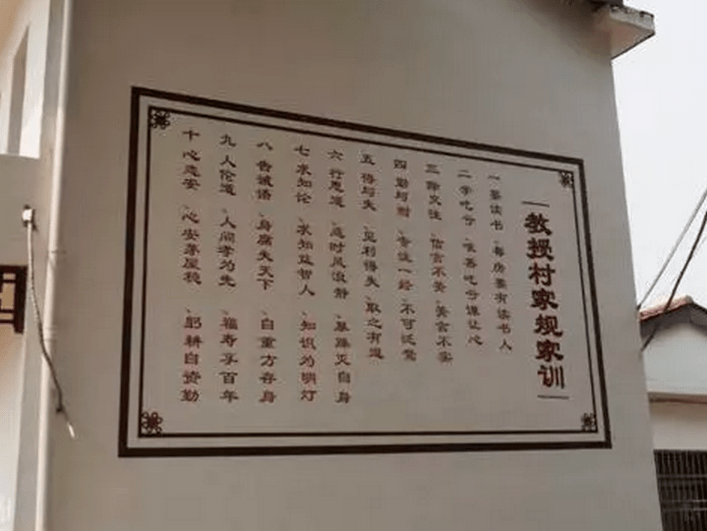 教授村家规家训
一 要读书、每房要有读书人
二 学吃亏、吃亏
三 除交注、信言不美、美言不实
四 勤与耐、专注一经、不可泛鹜
五 得与失、见利得失、取之有道
六 行思道、逆时风浪静、暴躁灭自身
七 求知论、求知益智人、知识为明灯
八 告诫语、身腐失天下、自重方存身
九 人伦道、人间孝为先、福寿享百年
十 心态安、心安茅屋稳、躬耕自资勤